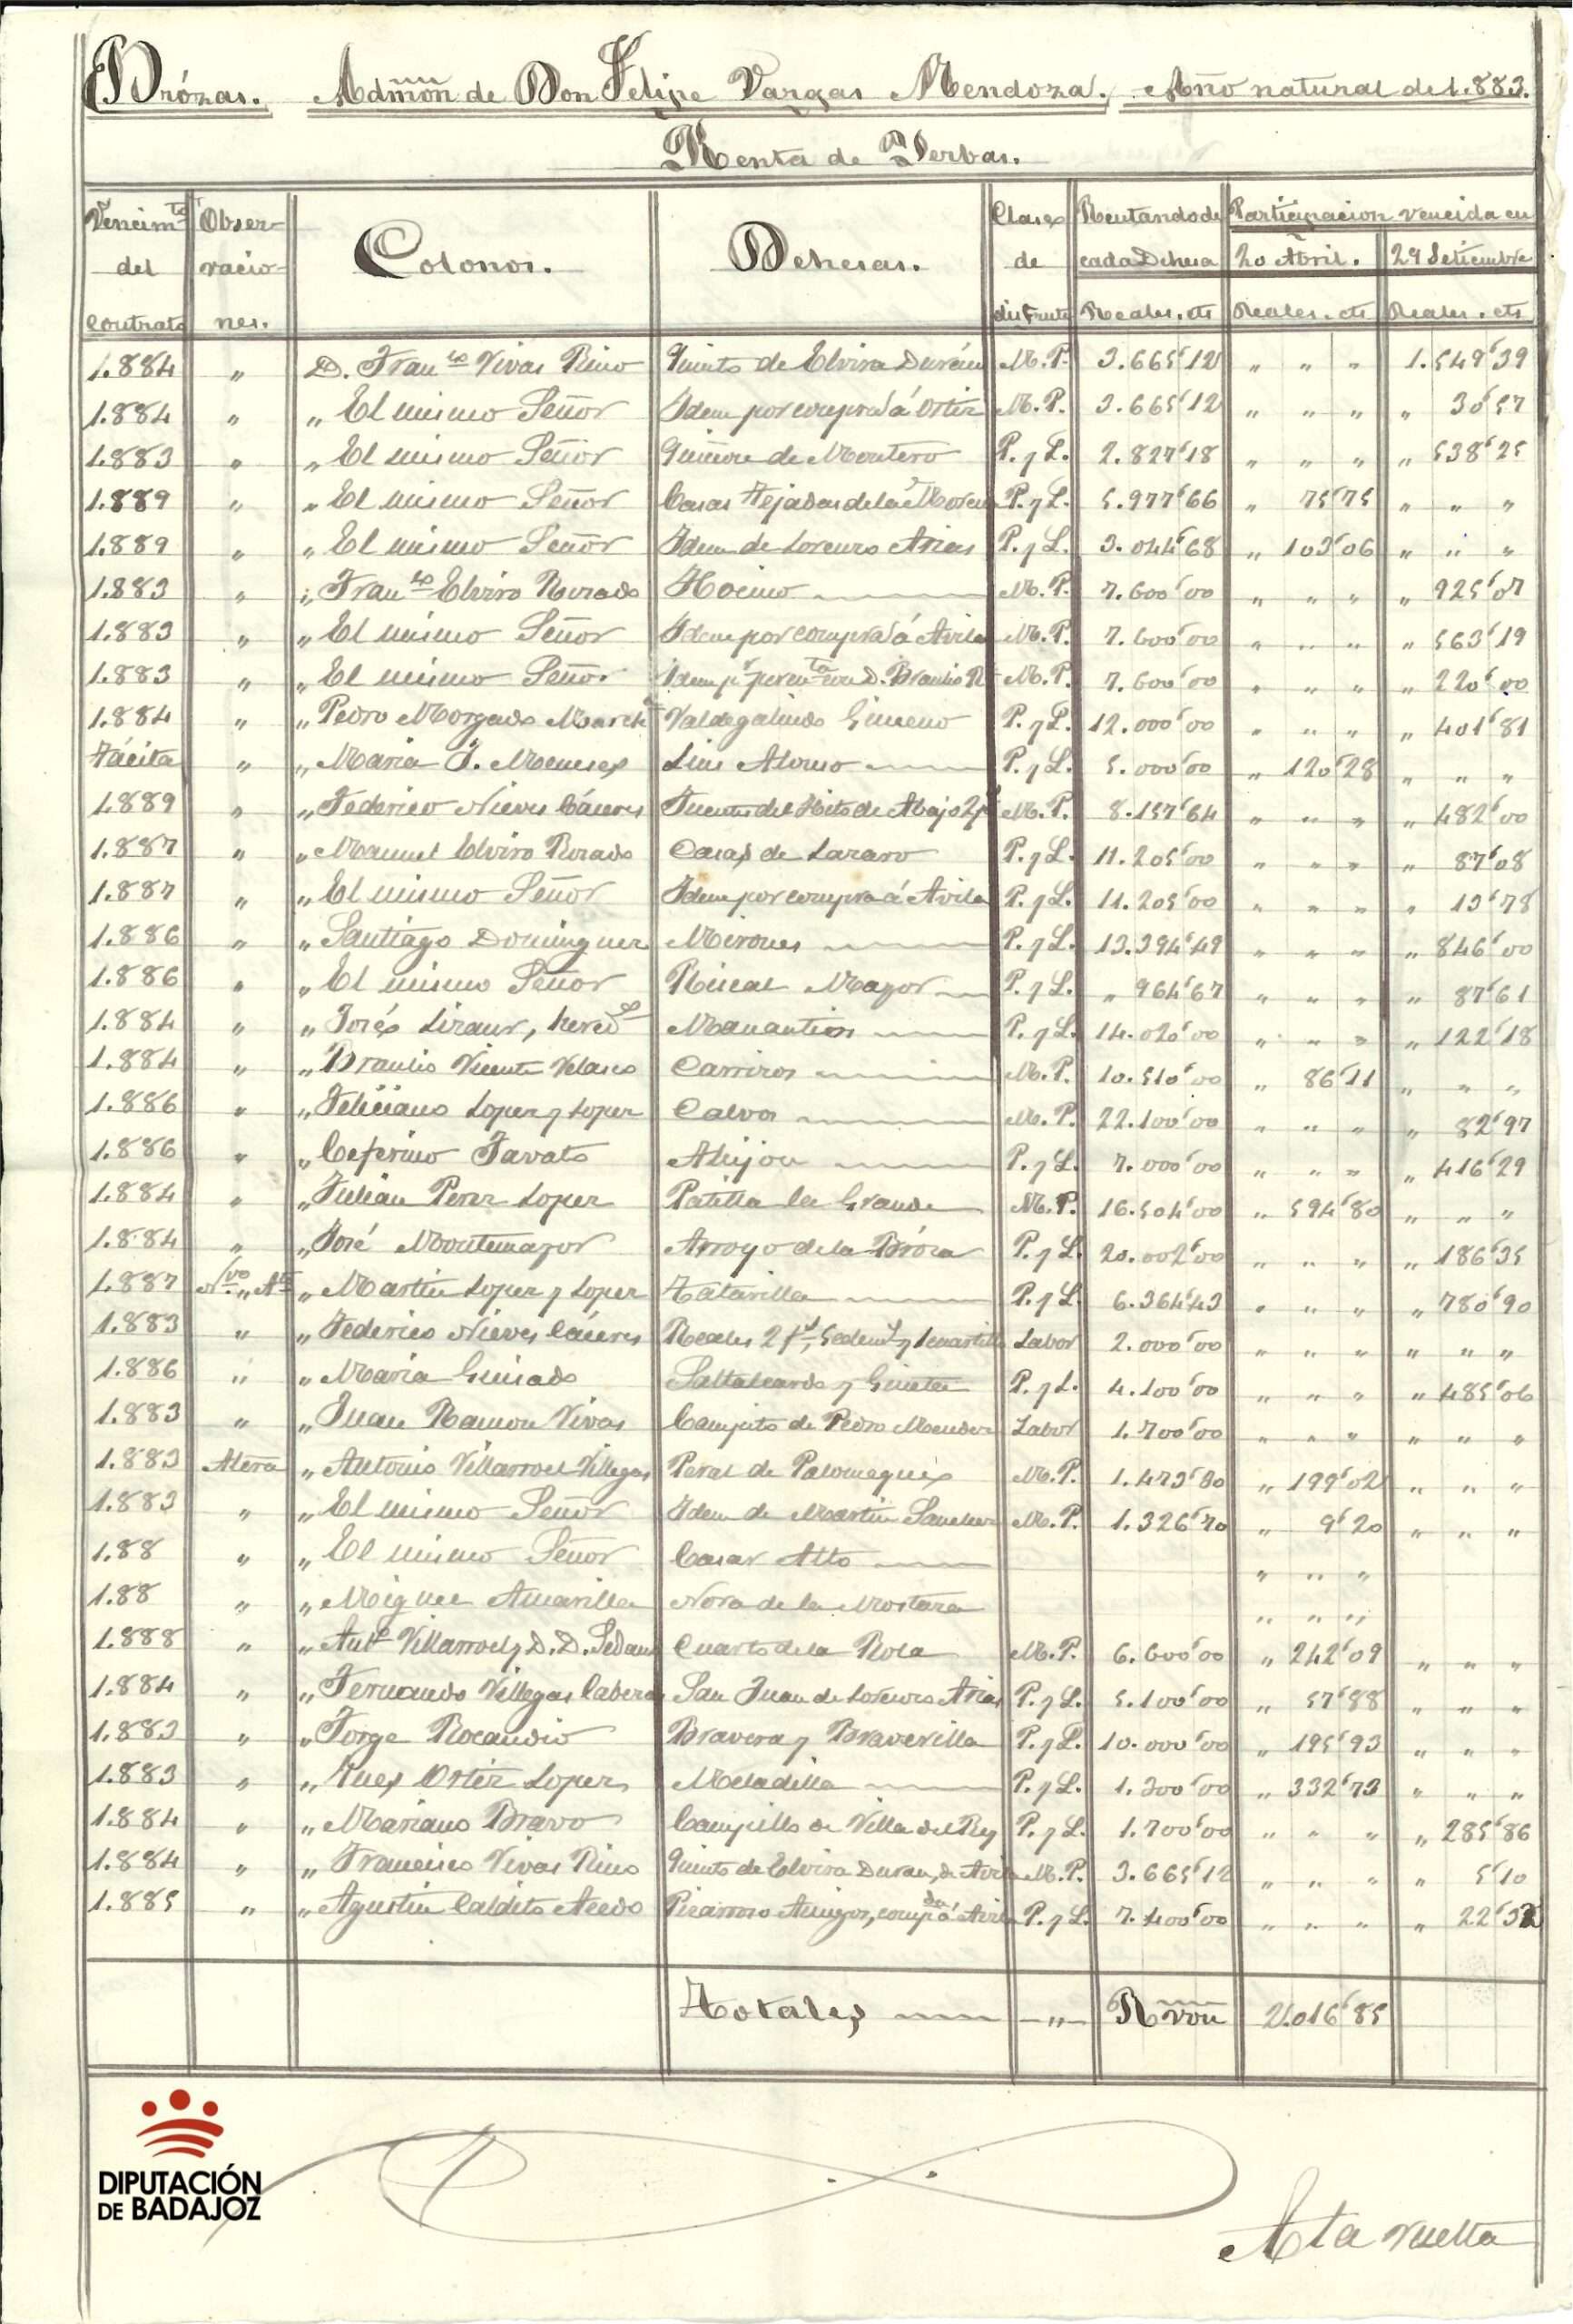 Brózas. Admon de Don Felipe Vargas Mendoza. Año natural de 1.883.
Renta de Yerbas.
Vencimto del contrato | Observaciones. | Colonos. | Dehesas. | Clases de disfrute | Rentando de cada Dehesa Reales. cts | Participacion vencida en
20 Abril. Reales. cts | 29 Setiembre Reales. cts
1.884 " D. Franco Vivas Rino Quinto de Elvira Durán M. P. 3.665'12 " " " 1.549'39
1.884 " " El mismo Señor Idem por compra á Ortiz M. P. 3.665'12 " " " " 30'57
1.883 " " El mismo Señor de Montero P. y L. 2.827'18 " " " " 538'25
1.889 " " El mismo Señor Casas Tejadas de la P. y L. 5.977'66 " 75'75 " " "
1.889 " " El mismo Señor Idem de Lorenzo Arias P. y L. 3.044'68 " 103'06 " " "
1.883 " " Franco Elviro Rosado Hocino M. P. 7.600'00 " " " " 925'07
1.883 " " El mismo Señor Idem por compra á Avila M. P. 7.600'00 " " " " 563'19
1.883 " " El mismo Señor Idem pr permta con D. Braulio R M. P. 7.600'00 " " " " 220'00
1.884 " " Pedro Morgado Valdegalindo Gimeno P. y L. 12.000'00 " " " " 401'81
Tácita " " Maria J. Meneses Luis Alonso P. y L. 5.000'00 " 120'28 " " "
1.889 " " Federico Nieves Cáceres Fuentes del Hito de Abajo M. P. 8.157'64 " " " " 482'00
1.887 " " Manuel Elviro Rosado Casas de Lazaro P. y L. 11.205'00 " " " " 87'08
1.887 " " El mismo Señor Idem por compra á Avila P. y L. 11.205'00 " " " " 13'78
1.886 " " Santiago Dominguez Mirones P. y L. 13.394'49 " " " " 846'00
1.886 " " El mismo Señor Mayor P. y L. " 964'67 " " " " 87'61
1.884 " " Lizaur, hereds Manantios P. y L. 14.020'00 " " " " 122'18
1.884 " " Braulio Vicente Velasco Carrizos M. P. 10.510'00 " 86'11 " " "
1.886 " " Feliciano Lopez y Lopez Calvos M. P. 22.100'00 " " " " 82'97
1.886 " " Ceferino Tavato Ahijon P. y L. 7.000'00 " " " " 416'29
1.884 " " Julián Perez Lopez Patilla la Grande M. P. 16.504'00 " 594'80 " " "
1.884 " " José Montemayor Arroyo de la Bróza P. y L. 20.002'00 " " " " 186'35
1.887 " Martin Lopez y Lopez Zatarilla P. y L. 6.364'43 " " " " 780'90
1.883 " " Federico Nieves Cáceres Labor 2.000'00 " " " " " "
1.886 " " Maria Guisado y Gineta P. y L. 4.100'00 " " " " 485'06
1.883 " " Juan Ramon Vivas Campito de Pedro Mendoza Labor 1.700'00 " " " " " "
1.883 Alzra " Antonio Villarroel Villegas Peral de Palomeques M. P. 1.473'80 " 199'02 " " "
1.883 " " El mismo Señor Idem de Martin Sanchez M. P. 1.326'70 " 9'20 " " "
1.88 " " El mismo Señor Casar Alto " " "
1.88 " " Miguel Amarilla Nora de la Mostaza " " "
1.888 " " Anto Villarroel y D. D. Sedano Cuarto de la Rola M. P. 6.600'00 " 242'09 " " "
1.884 " " Fernando Villegas Cabezas San Juan de Lorenzo Arias P. y L. 5.100'00 " 57'88 " " "
1.883 " " Jorge Rocandio Bravera y Braverilla P. y L. 10.000'00 " 195'93 " " "
1.883 " " Ynes Ortiz Lopez Meladilla P. y L. 1.300'00 " 332'73 " " "
1.884 " " Mariano Bravo Campillo de Villa del Rey P. y L. 1.700'00 " " " " 285'86
1.884 " " Francisco Vivas Rino Quinto de Elvira Duran, de Avila M. P. 3.665'12 " " " " 5'10
1.885 " " Agustin Caldito Acedo Picarrozo Amigos, compda á Avila P. y L. 7.400'00 " " " " 22'32
Totales " Rvon 2.016'85
DIPUTACIÓN
DE BADAJOZ
A la vuelta